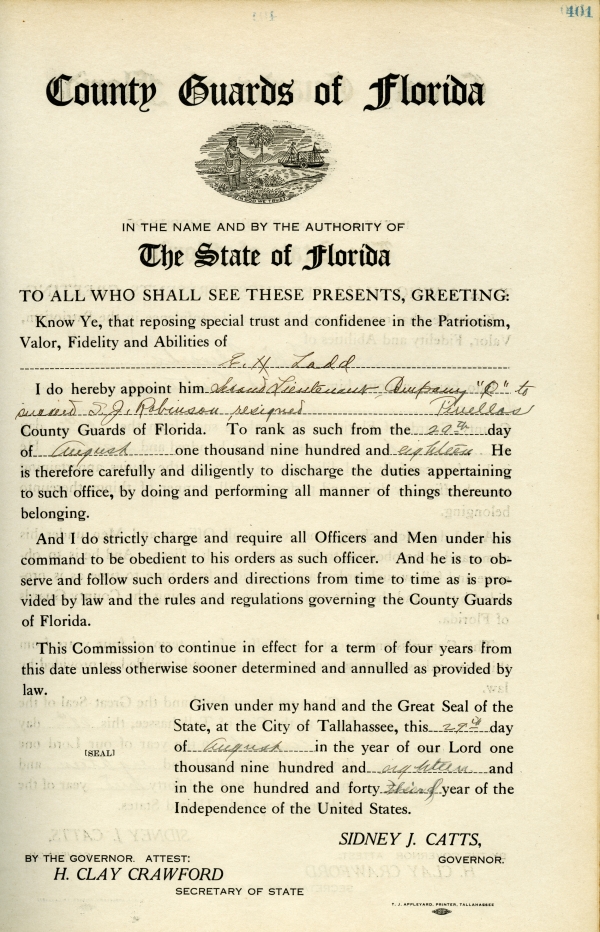 401
County Guards of Florida
IN GOD WE TRUST
IN THE NAME AND BY THE AUTHORITY OF
The State of Florida
TO ALL WHO SHALL SEE THESE PRESENTS, GREETING:
Know Ye, that reposing special trust and confidence in the Patriotism,
Valor, Fidelity and Abilities of
E. H. Ladd
I do hereby appoint him Second Lieutenant Company "C" to
succeed T. J. Robinson resigned Pinellas
County Guards of Florida. To rank as such from the 29th day
of August one thousand nine hundred and eighteen He
is therefore carefully and diligently to discharge the duties appertaining
to such office, by doing and performing all manner of things thereunto
belonging.
And I do strictly charge and require all Officers and Men under his
command to be obedient to his orders as such officer. And he is to ob-
serve and follow such orders and directions from time to time as is pro-
vided by law and the rules and regulations governing the County Guards
of Florida.
This Commission to continue in effect for a term of four years from
this date unless otherwise sooner determined and annulled as provided by
law.
Given under my hand and the Great Seal of the
State, at the City of Tallahassee, this 29th day
[SEAL] of August in the year of our Lord one
thousand nine hundred and eighteen and
in the one hundred and forty third year of the
Independence of the United States.
SIDNEY J. CATTS,
BY THE GOVERNOR. ATTEST: GOVERNOR.
H. CLAY CRAWFORD
SECRETARY OF STATE
T. J. APPLEYARD, PRINTER, TALLAHASSEE